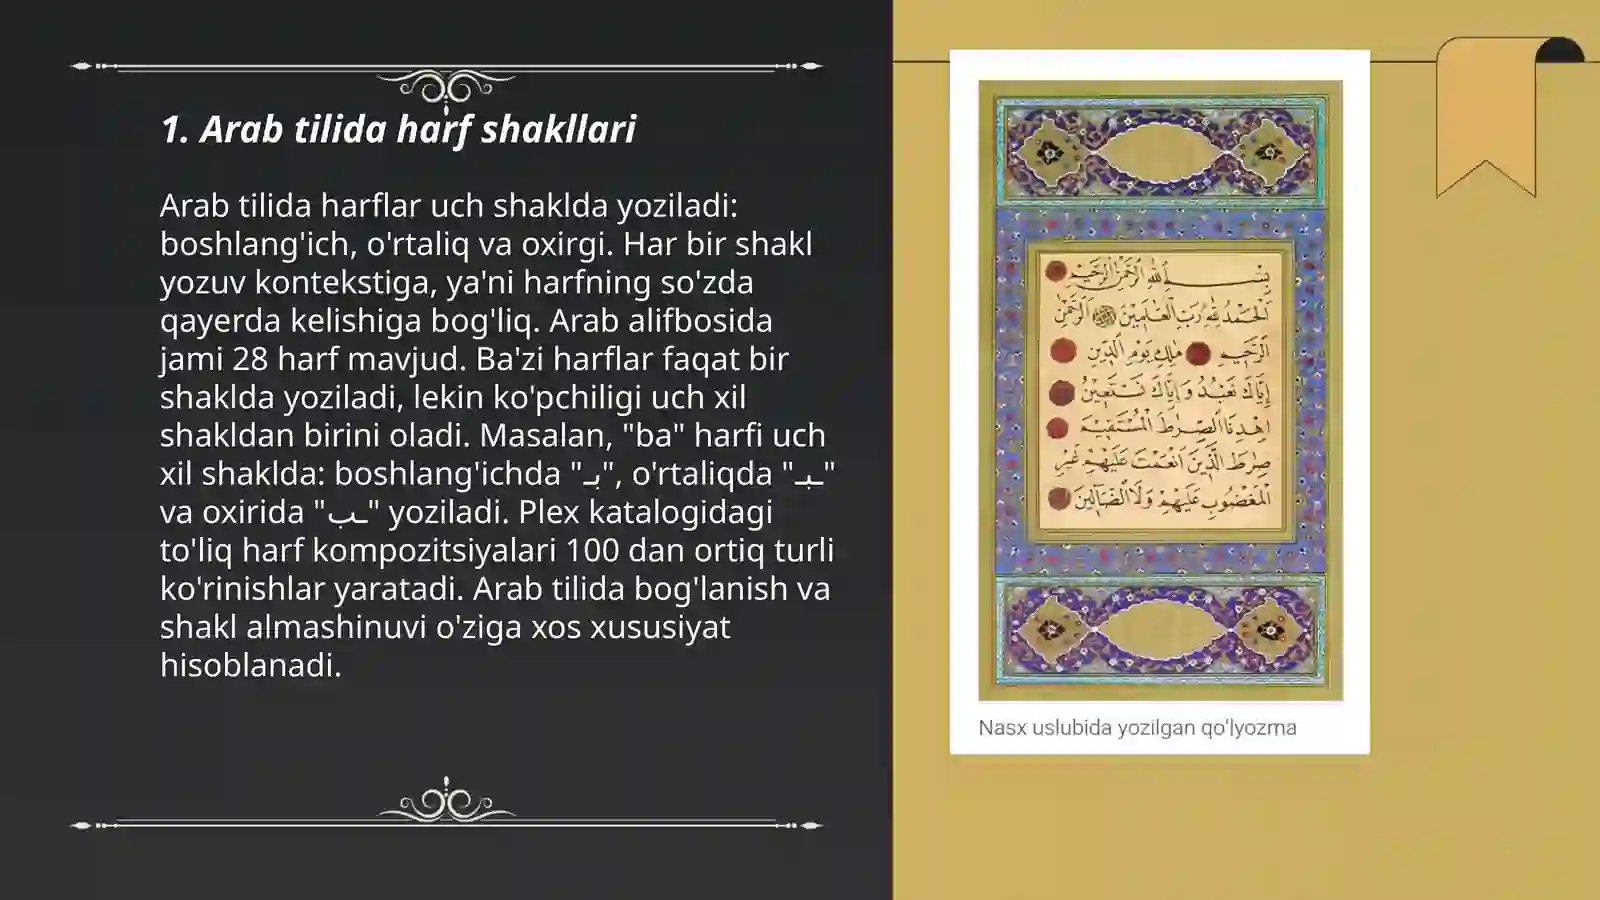 1. Arab tilida harf shakllari
Arab tilida harflar uch shaklda yoziladi:
boshlang'ich, o'rtaliq va oxirgi. Har bir shakl
yozuv kontekstiga, ya'ni harfning so'zda
qayerda kelishiga bog'liq. Arab alifbosida
jami 28 harf mavjud. Ba'zi harflar faqat bir
shaklda yoziladi, lekin ko'pchiligi uch xil
shakldan birini oladi. Masalan, "ba" harfi uch
xil shaklda: boshlang'ichda "بـ", o'rtaliqda "ـبـ"
va oxirida "ـب" yoziladi. Plex katalogidagi
to'liq harf kompozitsiyalari 100 dan ortiq turli
ko'rinishlar yaratadi. Arab tilida bog'lanish va
shakl almashinuvi o'ziga xos xususiyat
hisoblanadi.
بِسْمِ اللهِ الرَّحْمٰنِ الرَّحِيمِ
اَلْحَمْدُ لِلّٰهِ رَبِّ الْعَالَمِينَ الرَّحْمٰنِ
الرَّحِيمِ مٰلِكِ يَوْمِ الدِّينِ
إِيَّاكَ نَعْبُدُ وَإِيَّاكَ نَسْتَعِينُ
اِهْدِنَا الصِّرَاطَ الْمُسْتَقِيمَ
صِرَاطَ الَّذِينَ أَنْعَمْتَ عَلَيْهِمْ غَيْرِ
الْمَغْضُوبِ عَلَيْهِمْ وَلَا الضَّالِّينَ
Nasx uslubida yozilgan qoʻlyozma